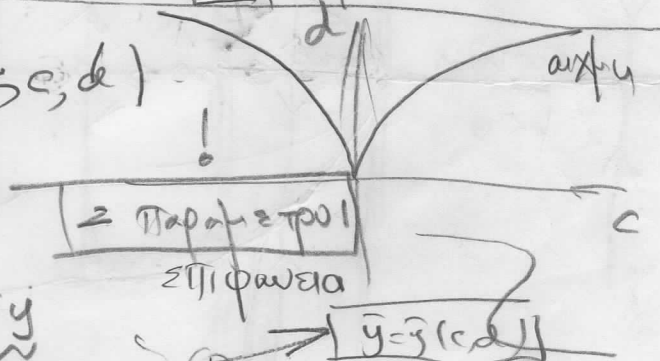 d
; c, d)
αιχμη
!
2 παραμετροι
c
επιφανεια
y
ȳ=ȳ(c,d)